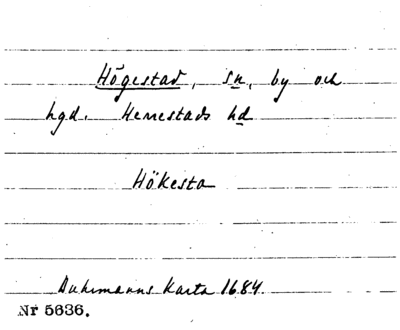 Högestad, sn, by och
hgd. Herrestads hd
Hökesta
Buhrmanns Karta 1684.
Nr 5636.